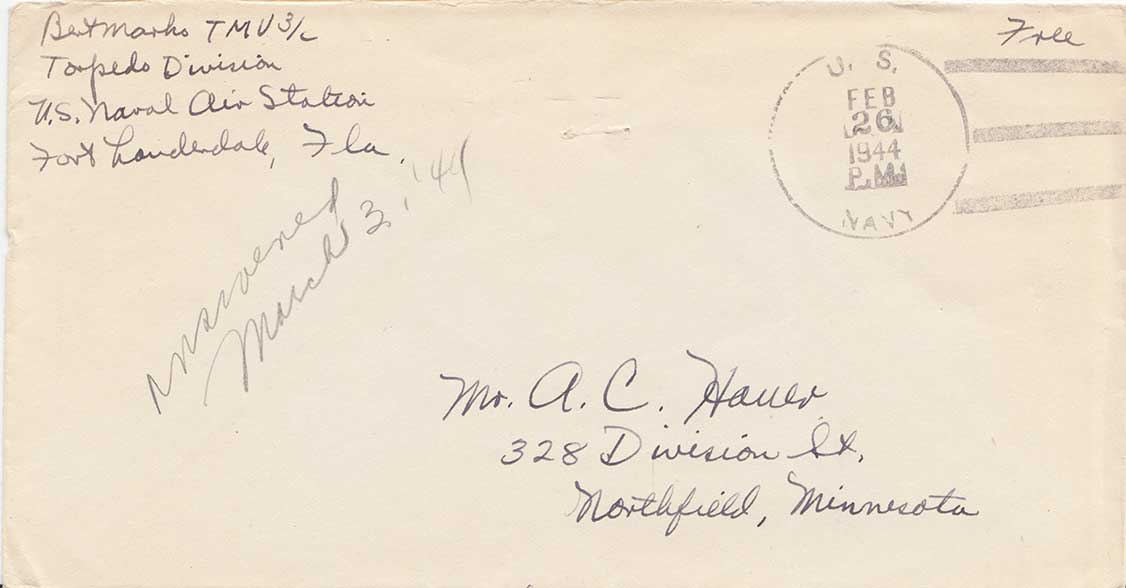 Bert Marko TMV 3/c
Torpedo Division
U.S. Naval Air Station
Fort Lauderdale, Fla.
Free
U. S.
FEB
26
1944
P.M.
NAVY
answered
March 3, '44
Mr. A. C. Hauer
328 Division St.
Northfield, Minnesota